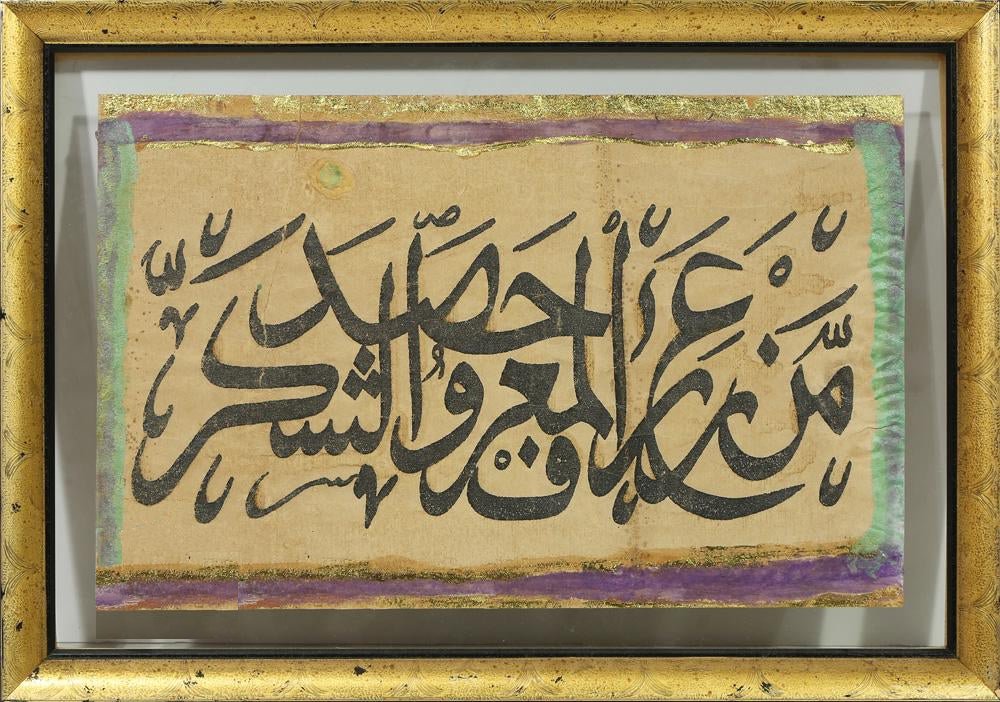 من زرع المعروف حصد الشكر